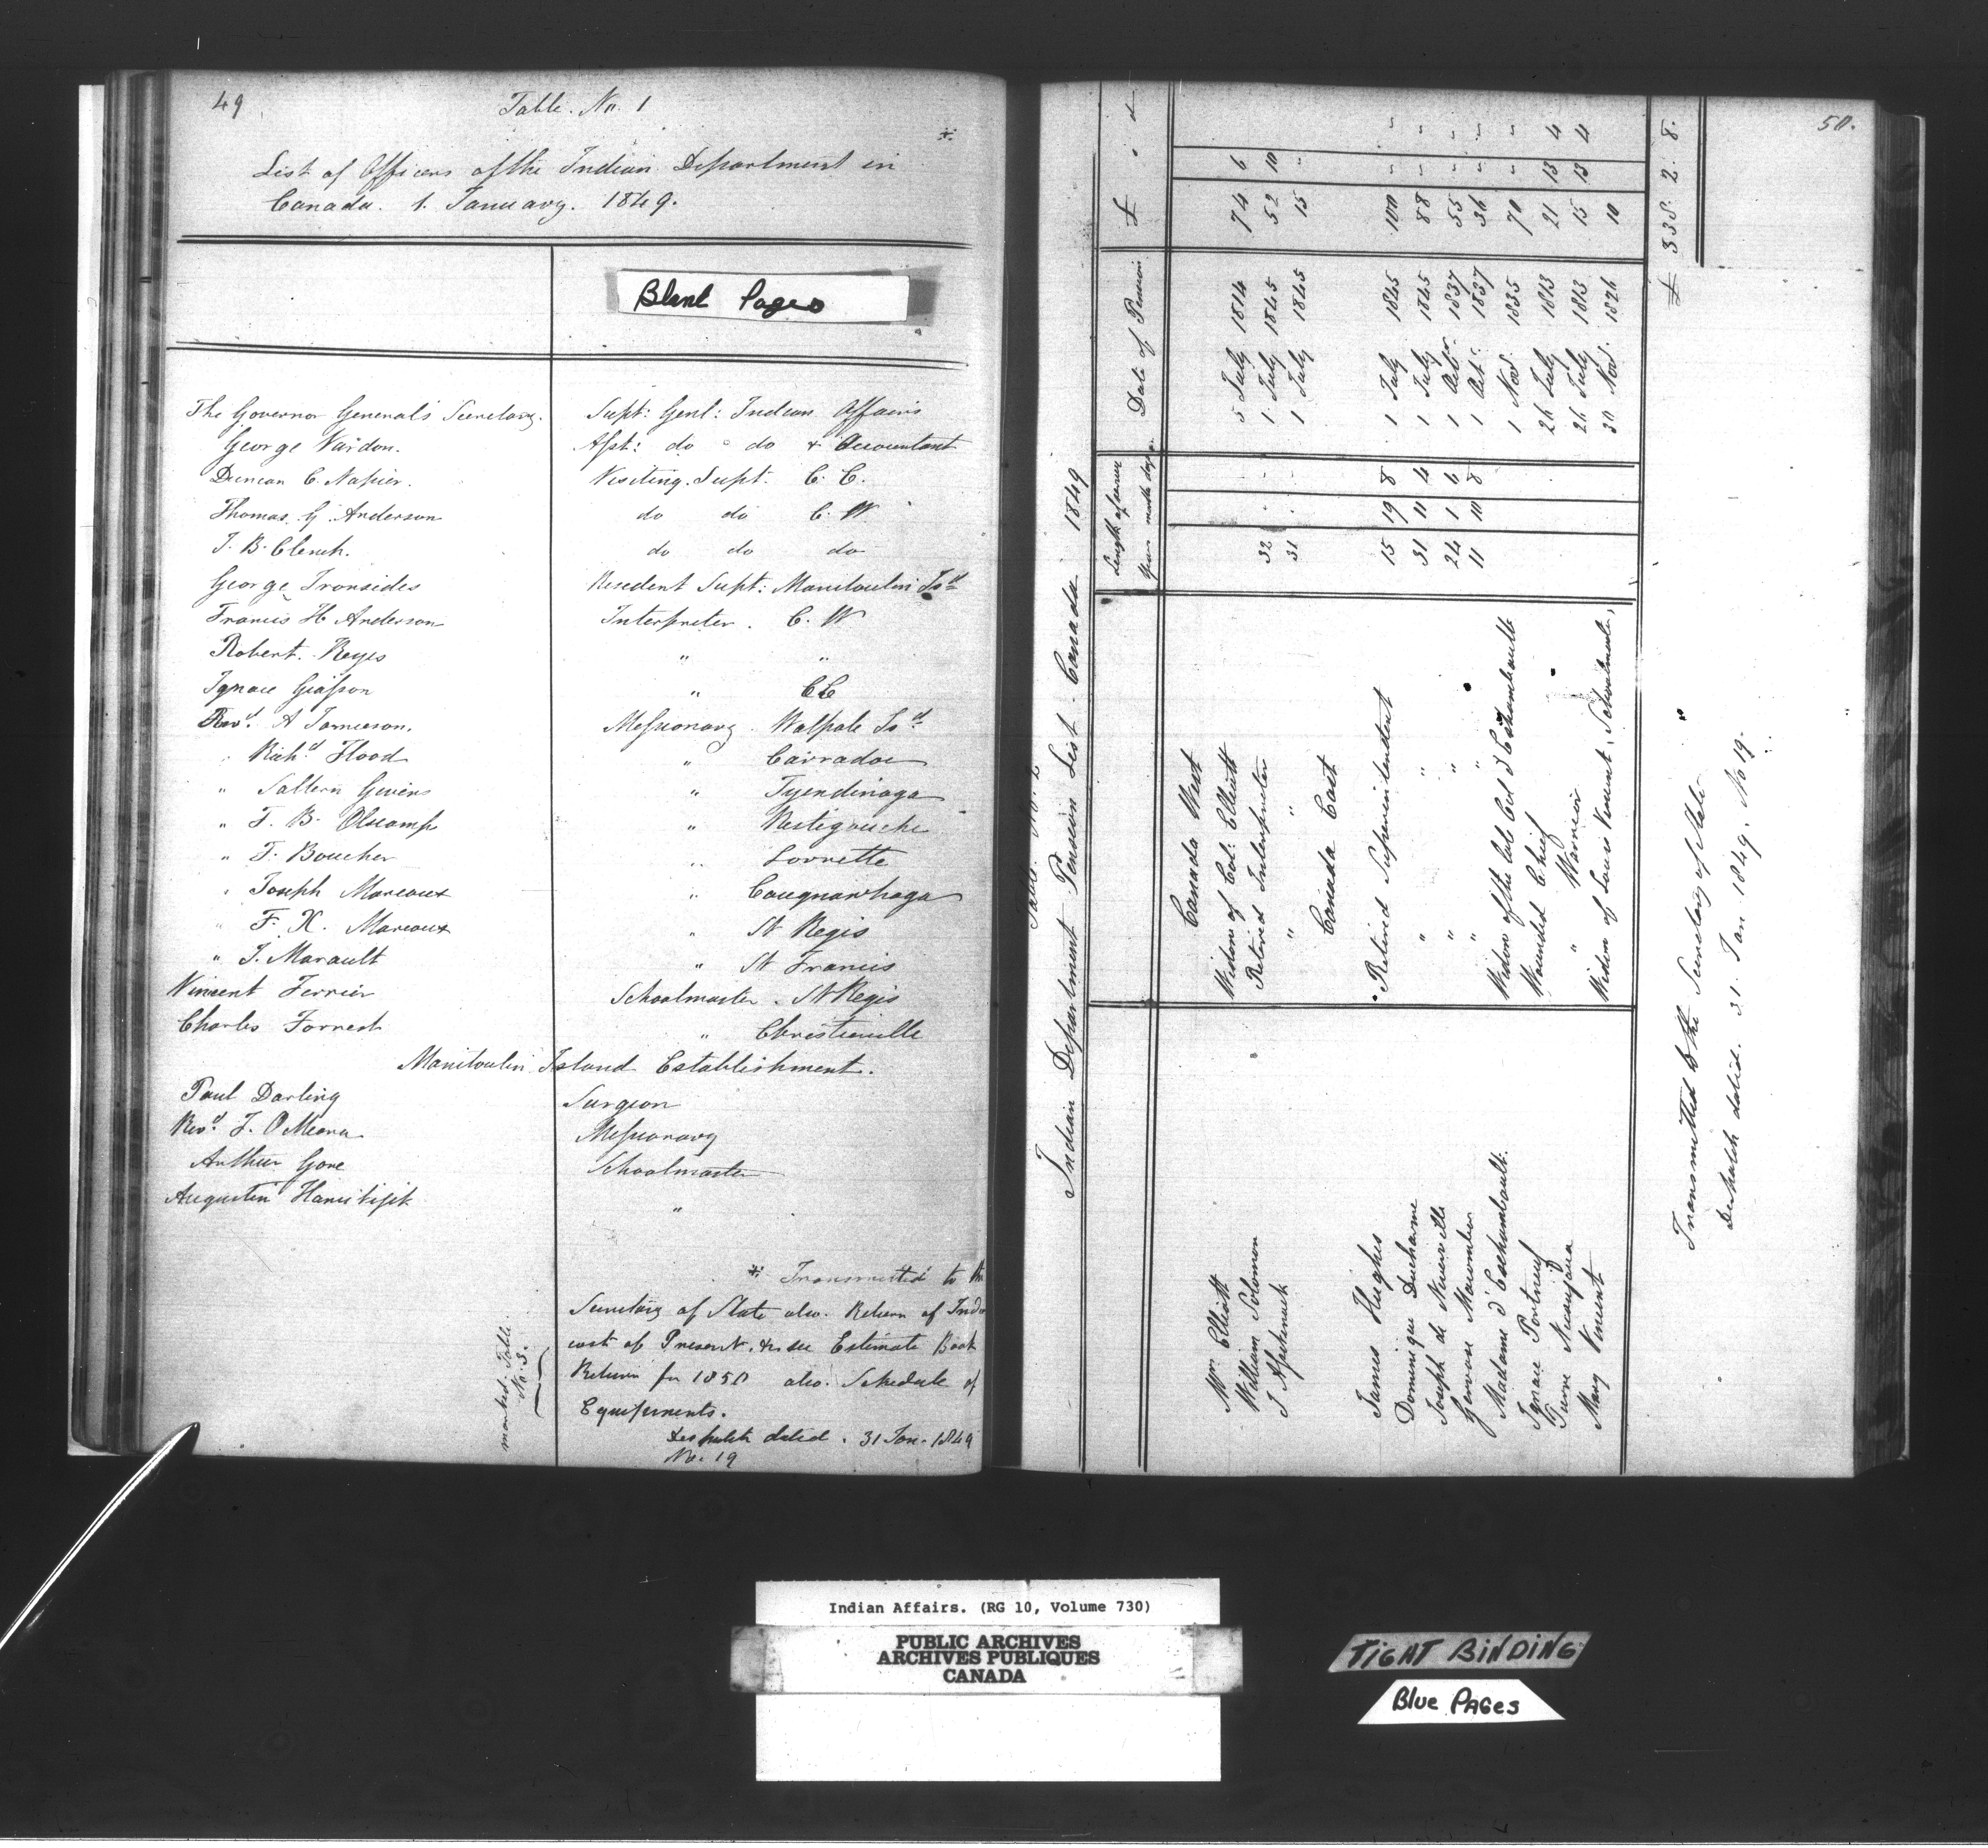 49
Table. No. 1
*
List of Officers of the Indian Department in
Canada. 1. January. 1849.
Blank Pages
The Governor General's Secretary. Supt: Genl: Indian Affairs
George Vardon. Asst: do do & Accountant
Duncan C. Napier. Visiting Supt: C. E.
Thomas G Anderson do do C. W
J. B. Clench. do do do
George Ironsides Resident Supt: Manitoulin Isd
Francis H Anderson Interpreter. C. W
Robert. Keyes " "
Ignace Giasson " CE
Revd. A Jamieson. Missionary. Walpole Isd
" Richd Flood " Carradoc
" Saltern Givins " Tyendinaga
" F. B. Olscamp " Restigouche
" F. Boucher " Lorrette
" Joseph Marcoux " Caugnawhaga
" F. X. Marcoux " St Regis
" J. Marault " St Francis
Vincent Ferrier Schoolmaster. St Regis
Charles Forrest " Christieville
Manitoulin Island Establishment.
Paul Darling Surgeon
Revd. F. O'Meara Missionary
Arthur Gore Schoolmaster
Augustin "
* Transmitted to the
Secretary of State also. Return of
cost of Present. & see Estimate Book
Return for 1850 also. Schedule of
Equipments.
Despatch dated. 31 Jan. 1849
No. 19
marked. Table.
No. 3.
50.
Indian Department Pension List. Canada 1849
Length of service Date of Pension £ s d
years months days
Canada West
Mrs. Elliott Widow of Col: Elliott 5 July 1814 74 6
William Solomon Retired Interpreter 32 - - 1 July 1845 52 10
J Assikinack " " 31 - - 1 July 1845 15 "
Canada East
James Hughes Retired Superintendent 15 19 8 1 July 1845 100 " "
Dominique Ducharme " " 31 11 4 1 July 1845 88 " "
Joseph de Niverville " " 24 1 6 1 Octr. 1837 55 " "
Gervase Macomber " " 11 10 8 1 Octr. 1837 36 " "
Madame d'Eschambault. Widow of the late Col d'Eschambault 1 Novr. 1835 70 " "
Ignace Portneuf Wounded Chief 26 July 1813 21 13 4
Pierre " Warrior 26 July 1813 15 13 4
Mary Vincent Widow of Louis Vincent, Schoolmaster, 30 Nov. 1826 10
£ 538. 2. 8.
Transmitted to the Secretary of State
Despatch dated. 31. Jan 1849. No 19.
Indian Affairs. (RG 10, Volume 730)
PUBLIC ARCHIVES
ARCHIVES PUBLIQUES
CANADA
TIGHT BINDING
Blue PAGes